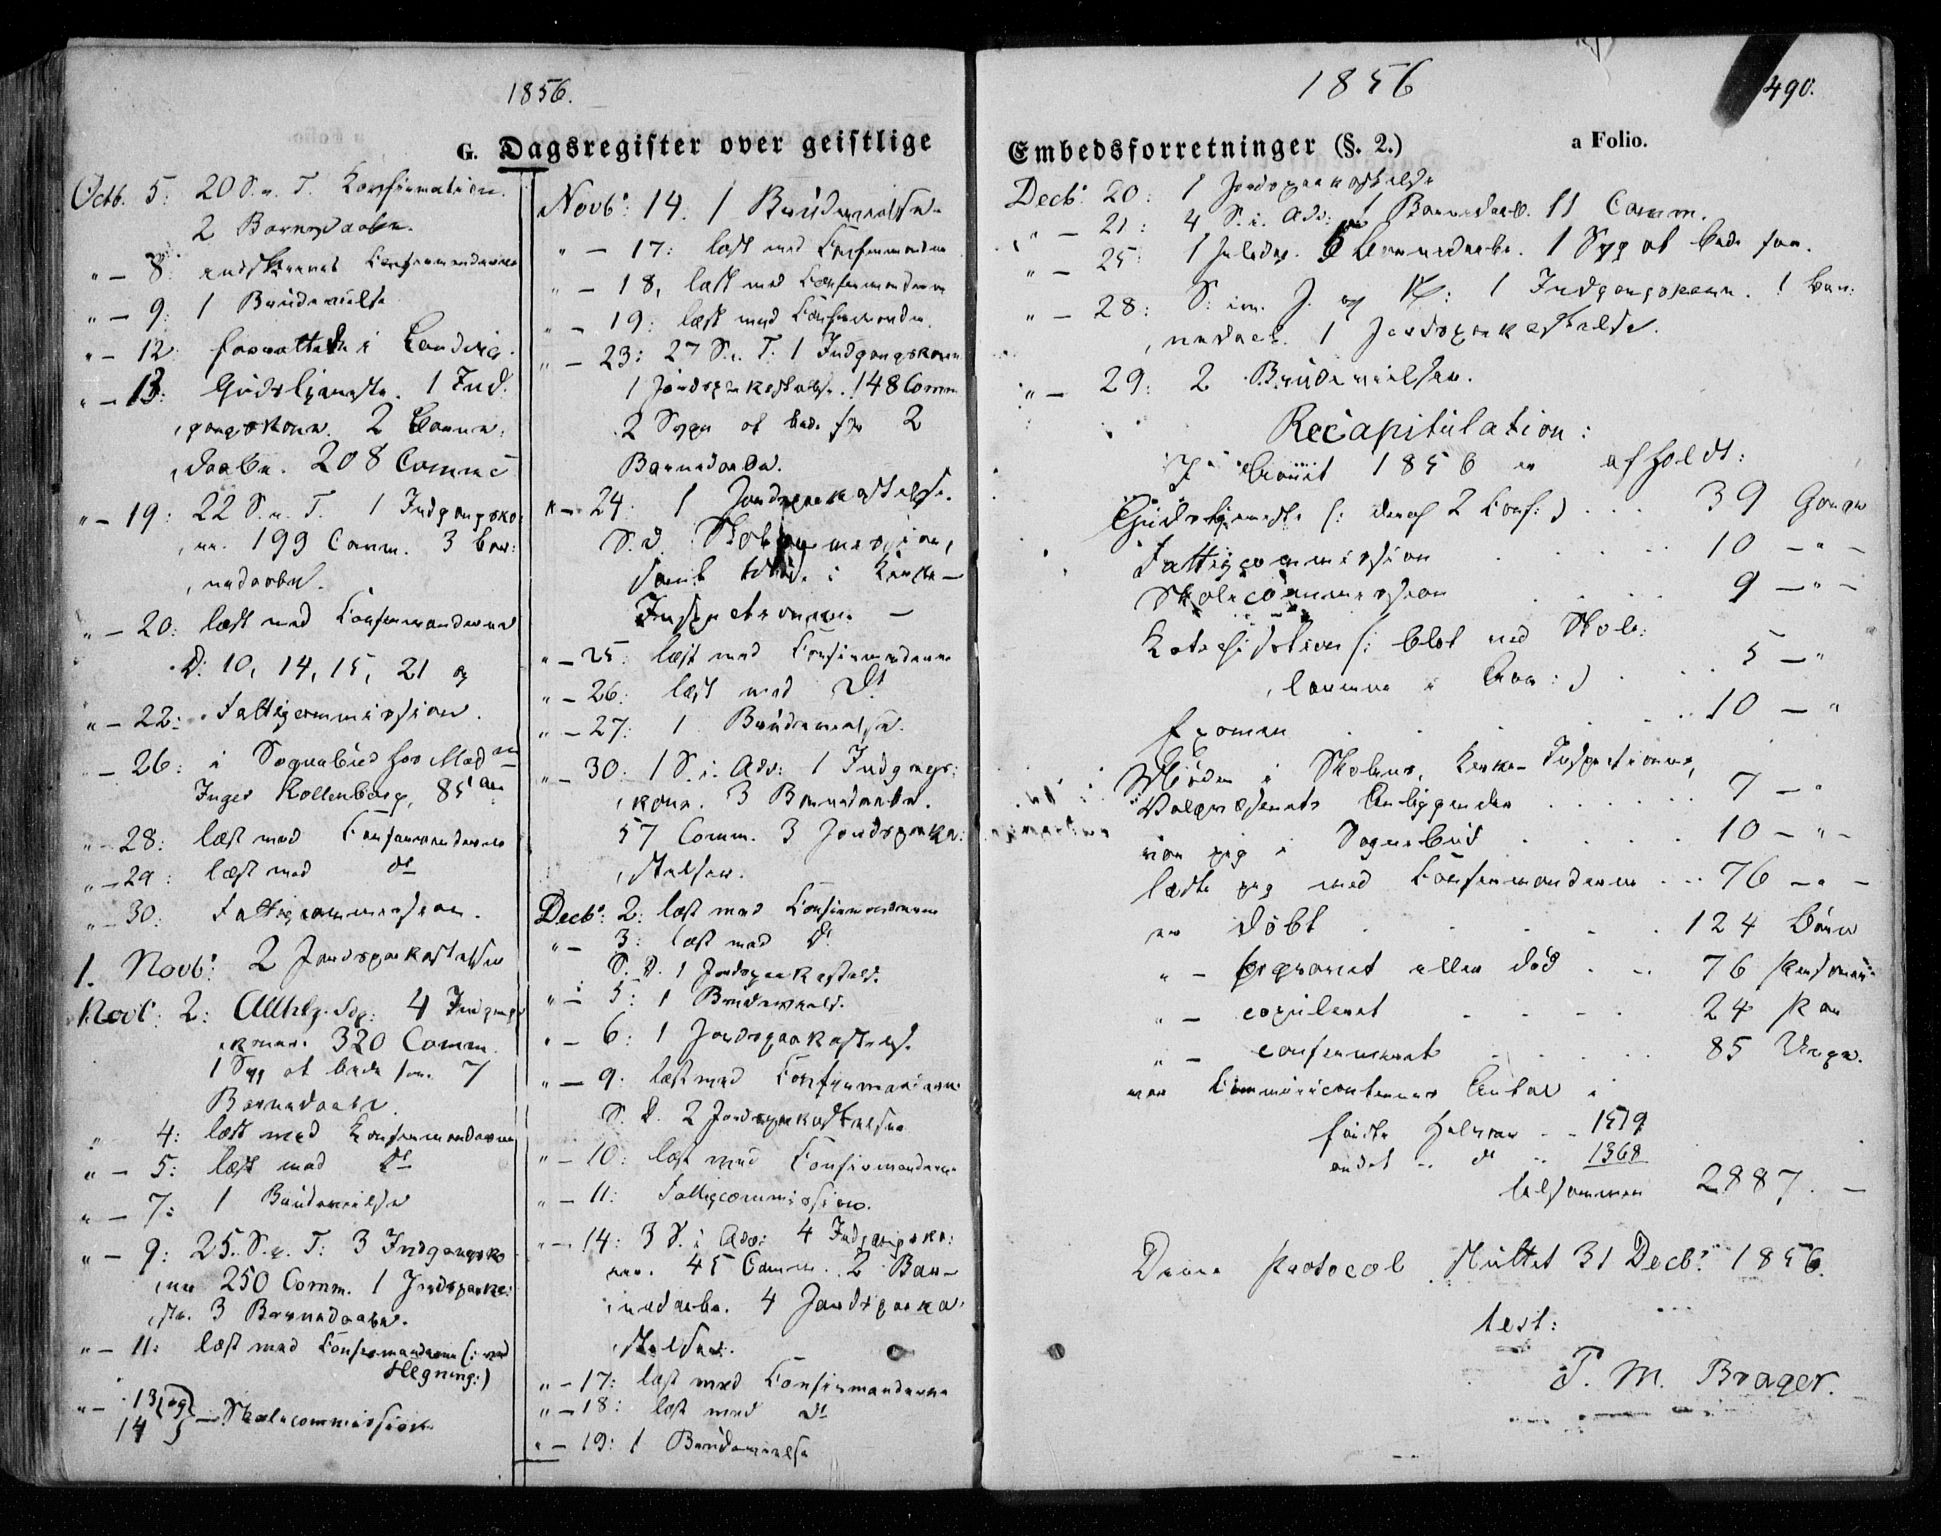 1856.
G. Dagsregister over geistlige
Octb. 5: 20 S. e. T. Konfirmation.
2 Barnedaabe.
" — 8: udskrevet Confirmanderne
" — 9: 1 Brudevielse
" — 12: forrettede i
" — 13: Gudstjeneste. 1 Ind-
gangskone. 2 Barne-
daabe. 208 Comm:
" — 19: 22 S. e. T. 1 Indgangsko-
ne. 199 Comm. 3 Bar-
nedaabe.
" — 20: læst med Confirmanderne
D: 10, 14, 15, 21 og
" — 22: Fattigcommission.
" — 26: i Sognebud hos Mad
Inger Kollenborg, 85 Aar
" — 28: læst med Confirmanderne
" — 29: læst med do
" — 30: Fattigcommission.
1. Novbr: 2 Jordspaakastelser
Novb: 2: Allhlg. Dg: 4 Indgangs-
koner. 320 Comm.
1 Syg at bede for. 7
Barnedaabe.
" 4: læst med Konfirmanderne
" — 5: læst med do
" — 7: 1 Brudevielse
" — 9: 25. S. e. T: 3 Indgangsko-
ner 250 Comm. 1 Jordspaaka-
stel. 3 Barnedaabe.
" — 11: læst med Confirmanderne (: ved
Hegning:)
" — 13 og
14 } — Skolecommission
Novbr: 14. 1 Brudevielse.
" — 17: læst med Confirmanderne
" — 18, læst med Confirmanderne
" — 19: læst med Confirmanderne.
" — 23: 27 S. e. T: 1 Indgangskone
1 Jordspaakastelse. 148 Comm.
2 Syge at bede for 2
Barnedaabe.
" — 24: 1 Jordspaakastelse.
S. D. Skolecommission,
samt Møde i Kirke-
Inspectionen. —
" — 25: læst med Confirmanderne
" — 26: læst med do
" — 27: 1 Brudevielse.
" — 30: 1 S. i. Adv: 1 Indgangs-
kone. 3 Barnedaabe.
57 Comm. 3 Jordspaaka-
stelser.
Decbr: 2: læst med Confirmanderne
" — 3: læst med do
S. D. 1 Jordspaakastels.
" — 5: 1 Brudevielse.
" — 6: 1 Jordspaakastelse
" — 9: læst med Confirmanderne
S. D. 2 Jordspaakastelser
" — 10: læst med Confirmanderne
" — 11: Fattigcommission.
" — 14: 3 S. i Adv: 4 Indgangsko-
ner. 45 Comm. 2 Bar-
nedaabe. 4 Jordspaaka-
stelser.
" — 17: læst med Confirmanderne
" — 18: læst med do
" — 19: 1 Brudevielse
1856
490.
Embedsforretninger (§. 2.)
a Folio.
Decbr: 20: 1 Jordspaakastelse
" — 21: 4 S. i. Adv: 1 Barnedaab. 11 Comm.
" — 25: 1 Juledag. 6 Barnedaabe. 1 Syg at bede for.
" — 28: S: im. J. og N: 1 Indgangskone. 1 Bar-
nedaab. 1 Jordspaakastelse.
" — 29: 2 Brudevielser.
Recapitulation:
I Aaret 1856 er afholdt:
Gudstjeneste (: deraf 2 Conf: ) . . . 39 Gange
Fattigcommission . . . 10 — " —
Skolecommission . . . 9 — " —
Katechisation (: blot med Skole-
børnene i :) . . . 5 — "
Examen . . . 10 — "
Møder i Skolens, Kirke-Inspectionens,
Valgvæsenets Anliggender . . . 7 — "
var jeg i Sognebud . . . 10 — " —
læste jeg med Confirmanderne . . . 76 — " —
er døbt . . . 124 Børn
" — begravet eller død . . . 76 Personer
" — copuleret . . . 24 Par
" — confirmeret . . . 85 Unge.
var Communicanternes Antal i
første Halvaar . . 1519
andet .. do .. 1368
tilsammen 2887. —
Denne Protocol sluttet 31 Decbr: 1856.
test:
P. M. Brager.